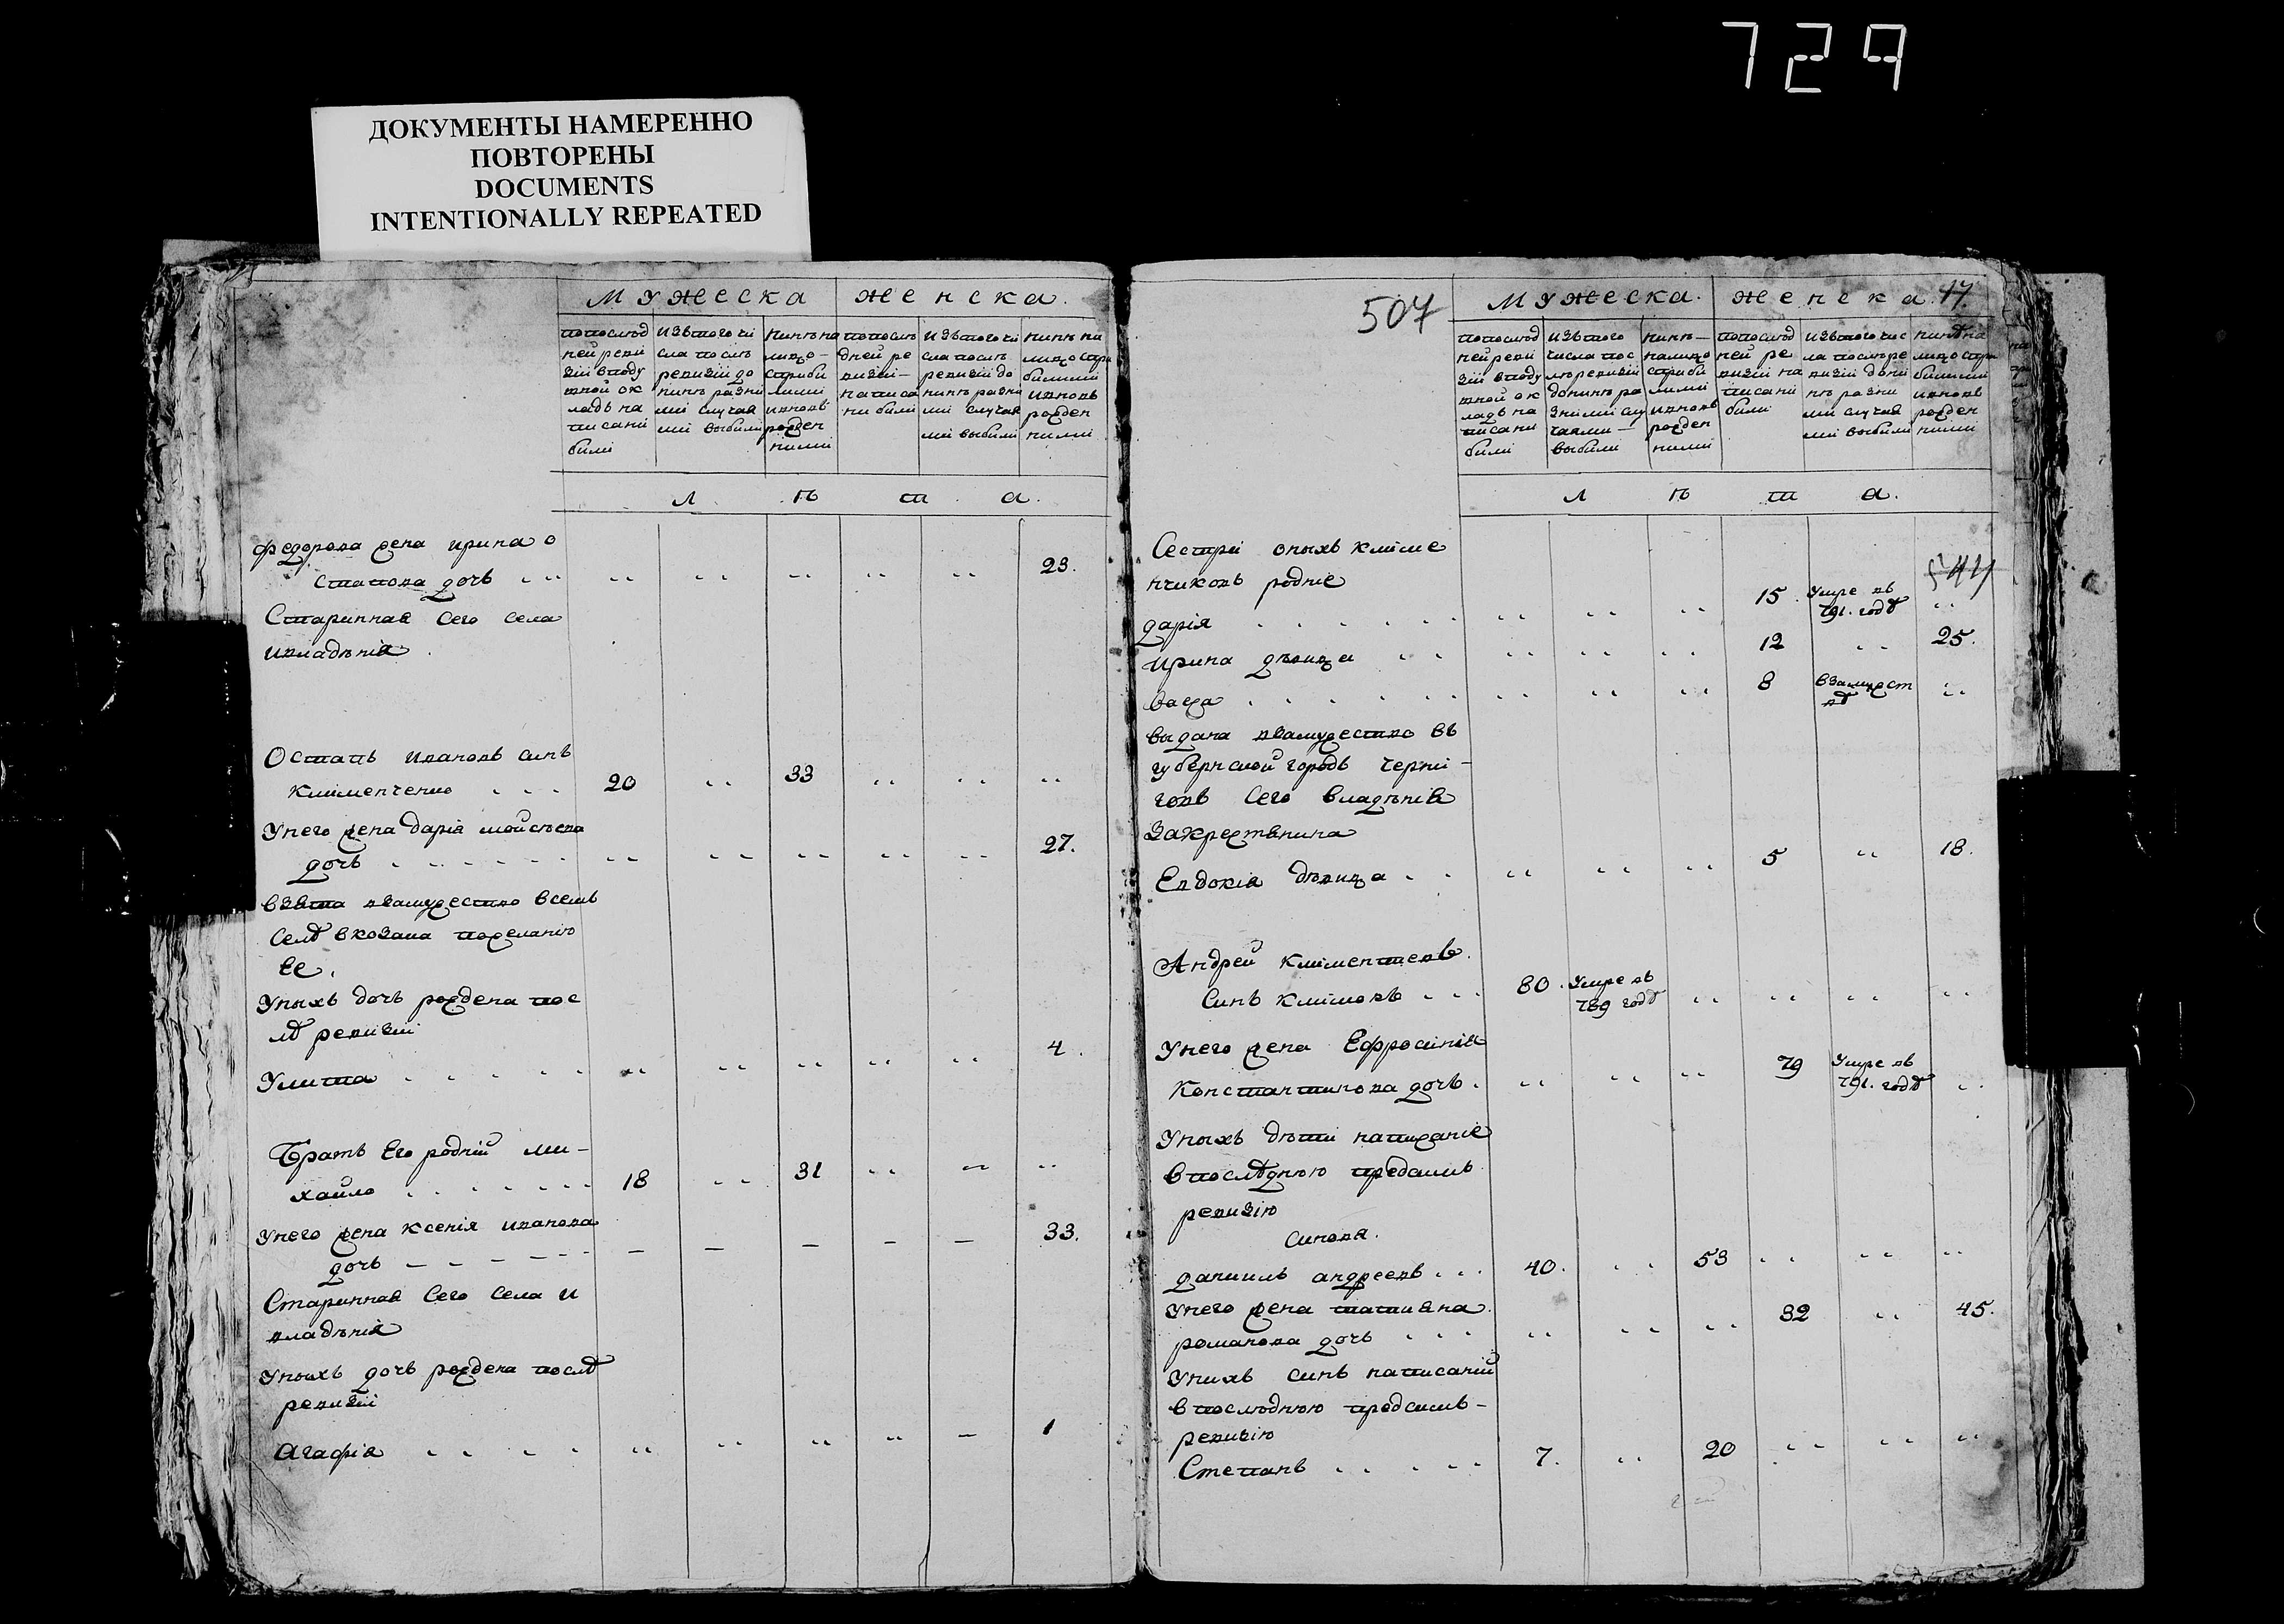 729
ДОКУМЕНТЫ НАМЕРЕННО
ПОВТОРЕНЫ
DOCUMENTS
INTENTIONALLY REPEATED
Мужеска женска.
попослѣд ней реви зіи вподу шной ок ладъ на писани били
изътого чи сла послѣ ревизіи до нинѣ разни ми случая ми выбили
нинѣ на лицо – стриби лими ивновь рожден ними
попослѣ дней ре визіи – написа ни били
изътого чи сла послѣ ревизіи до нинѣ разни ми случая ми выбили
нинѣ на лицо стри билими ивновь рожден ними
л ѣ т а.
федорова жена ирина о
стапова дочь .. .. .. .. .. .. 23.
Старинная сего села
ивладѣнія.
Остапъ ивановъ синъ
клименченко . . . 20 .. 33 .. .. ..
Унего жена дарія мойсѣева
дочь . . . . . . .. .. .. .. .. 27.
взята взамужество всемъ
селѣ вкозака пожеланію
Ее.
Уныхъ дочь рождена пос
лѣ ревизіи
Улита . . . . . .. .. .. .. .. 4.
Братъ Его родній ми-
хайло . . . . . . . 18 .. 31 .. .. ..
Унего жена ксенія иванова
дочь – – – – – – – – – – – 33.
Старинная сего села и
владѣнія
Уныхъ дочь рождена послѣ
ревизіи
Агафія . . . . .. .. .. .. – 1
507
Мужеска. женска. 17.
попослѣд ней реви зіи вподу шной ок ладъ на писани били
изътого числа пос лѣ ревизіи донинѣ ра зними слу чаями – выбили
нинѣ – налицо стриби лими ивновь рожден ними
попослѣд ней ре визіи на писани били
изътого чис ла послѣ ре визіи дони нѣ разни ми случая ми выбили
нинѣ на лицо стри билими ивновь рожден ними
л ѣ т а.
Сестри оныхъ климе
нчиковъ родніе
544
дарія . . . . . . .. .. .. 15. Умре въ 791. годѣ ..
ирина дѣвица . . .. .. .. 12 .. 25.
васа . . . . . . .. .. .. 8 взамужест вѣ ..
выдана взамужество въ
губернской городъ черни-
говъ сего владѣнія
закрестянина
Евдокія дѣвица . . .. .. .. 5 .. 18.
Андрей климентіевъ
синъ климовъ . . . 80. Умре въ 789 годѣ .. .. .. ..
Унего жена Ефросинія
константинова дочь . .. .. .. 79 Умре въ 791. годѣ ..
Уныхъ дѣти написаніе
впослѣднюю предсимъ
ревизію
Синова.
даниилъ андреевъ . . . 40. .. 53 .. .. ..
Унего жена татияна
романова дочь . . . .. .. .. 32 .. 45.
Унихъ синъ написаній
впослѣднюю предсимъ-
ревизію
Степанъ . . . . . 7. .. 20 .. .. ..